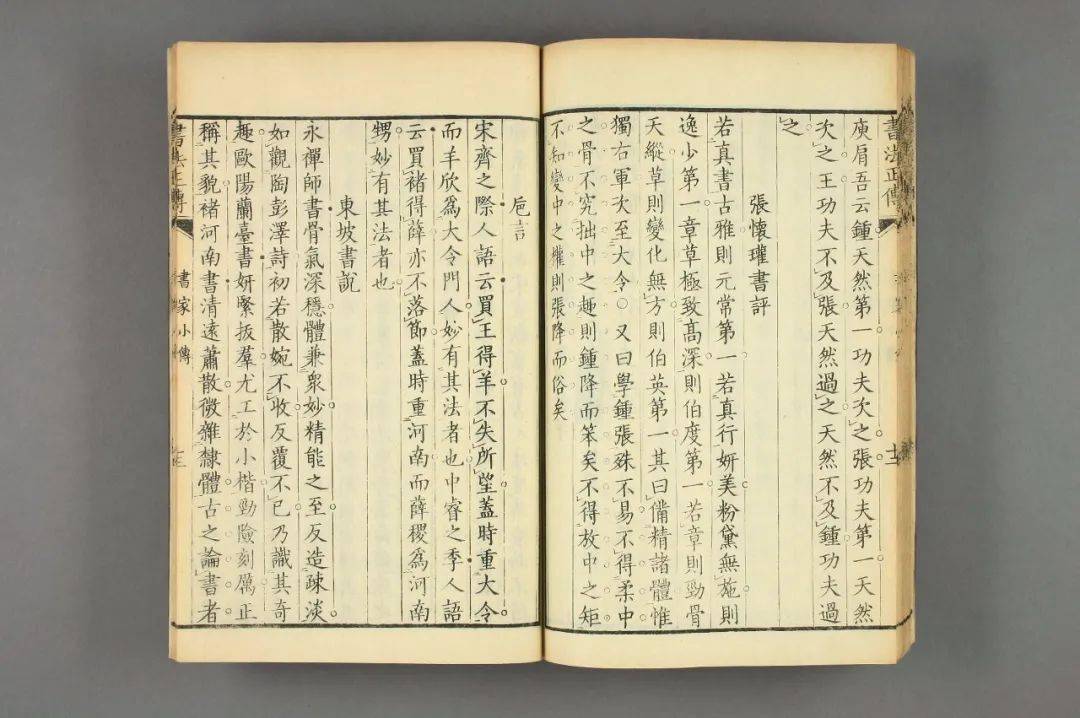 書法正傳
十二
庾肩吾云鍾天然第一功夫次之張功夫第一天然
次之王功夫不及張天然過之天然不及鍾功夫過
之
張懷瓘書評
若真書古雅則元常第一若真行妍美粉黛無施則
逸少第一章草極致高深則伯度第一若章則勁骨
天縱草則變化無方則伯英第一其曰備精諸體惟
獨右軍次至大令○又曰學鍾張殊不易不得柔中
之骨不究拙中之趣則鍾降而笨矣不得放中之矩
不知變中之權則張降而俗矣
巵言
宋齊之際人語云買王得羊不失所望蓋時重大令
而羊欣爲大令門人妙有其法者也中睿之季人語
云買褚得薛亦不落節蓋時重河南而薛稷爲河南
甥妙有其法者也
東坡書說
永禪師書骨氣深穩體兼衆妙精能之至反造疎淡
如觀陶彭澤詩初若散婉不收反覆不已乃識其奇
趣歐陽蘭臺書妍緊拔羣尤工於小楷勁險刻厲正
稱其貌褚河南書清遠蕭散微雜隸體古之論書者
書法正傳
書家小傳